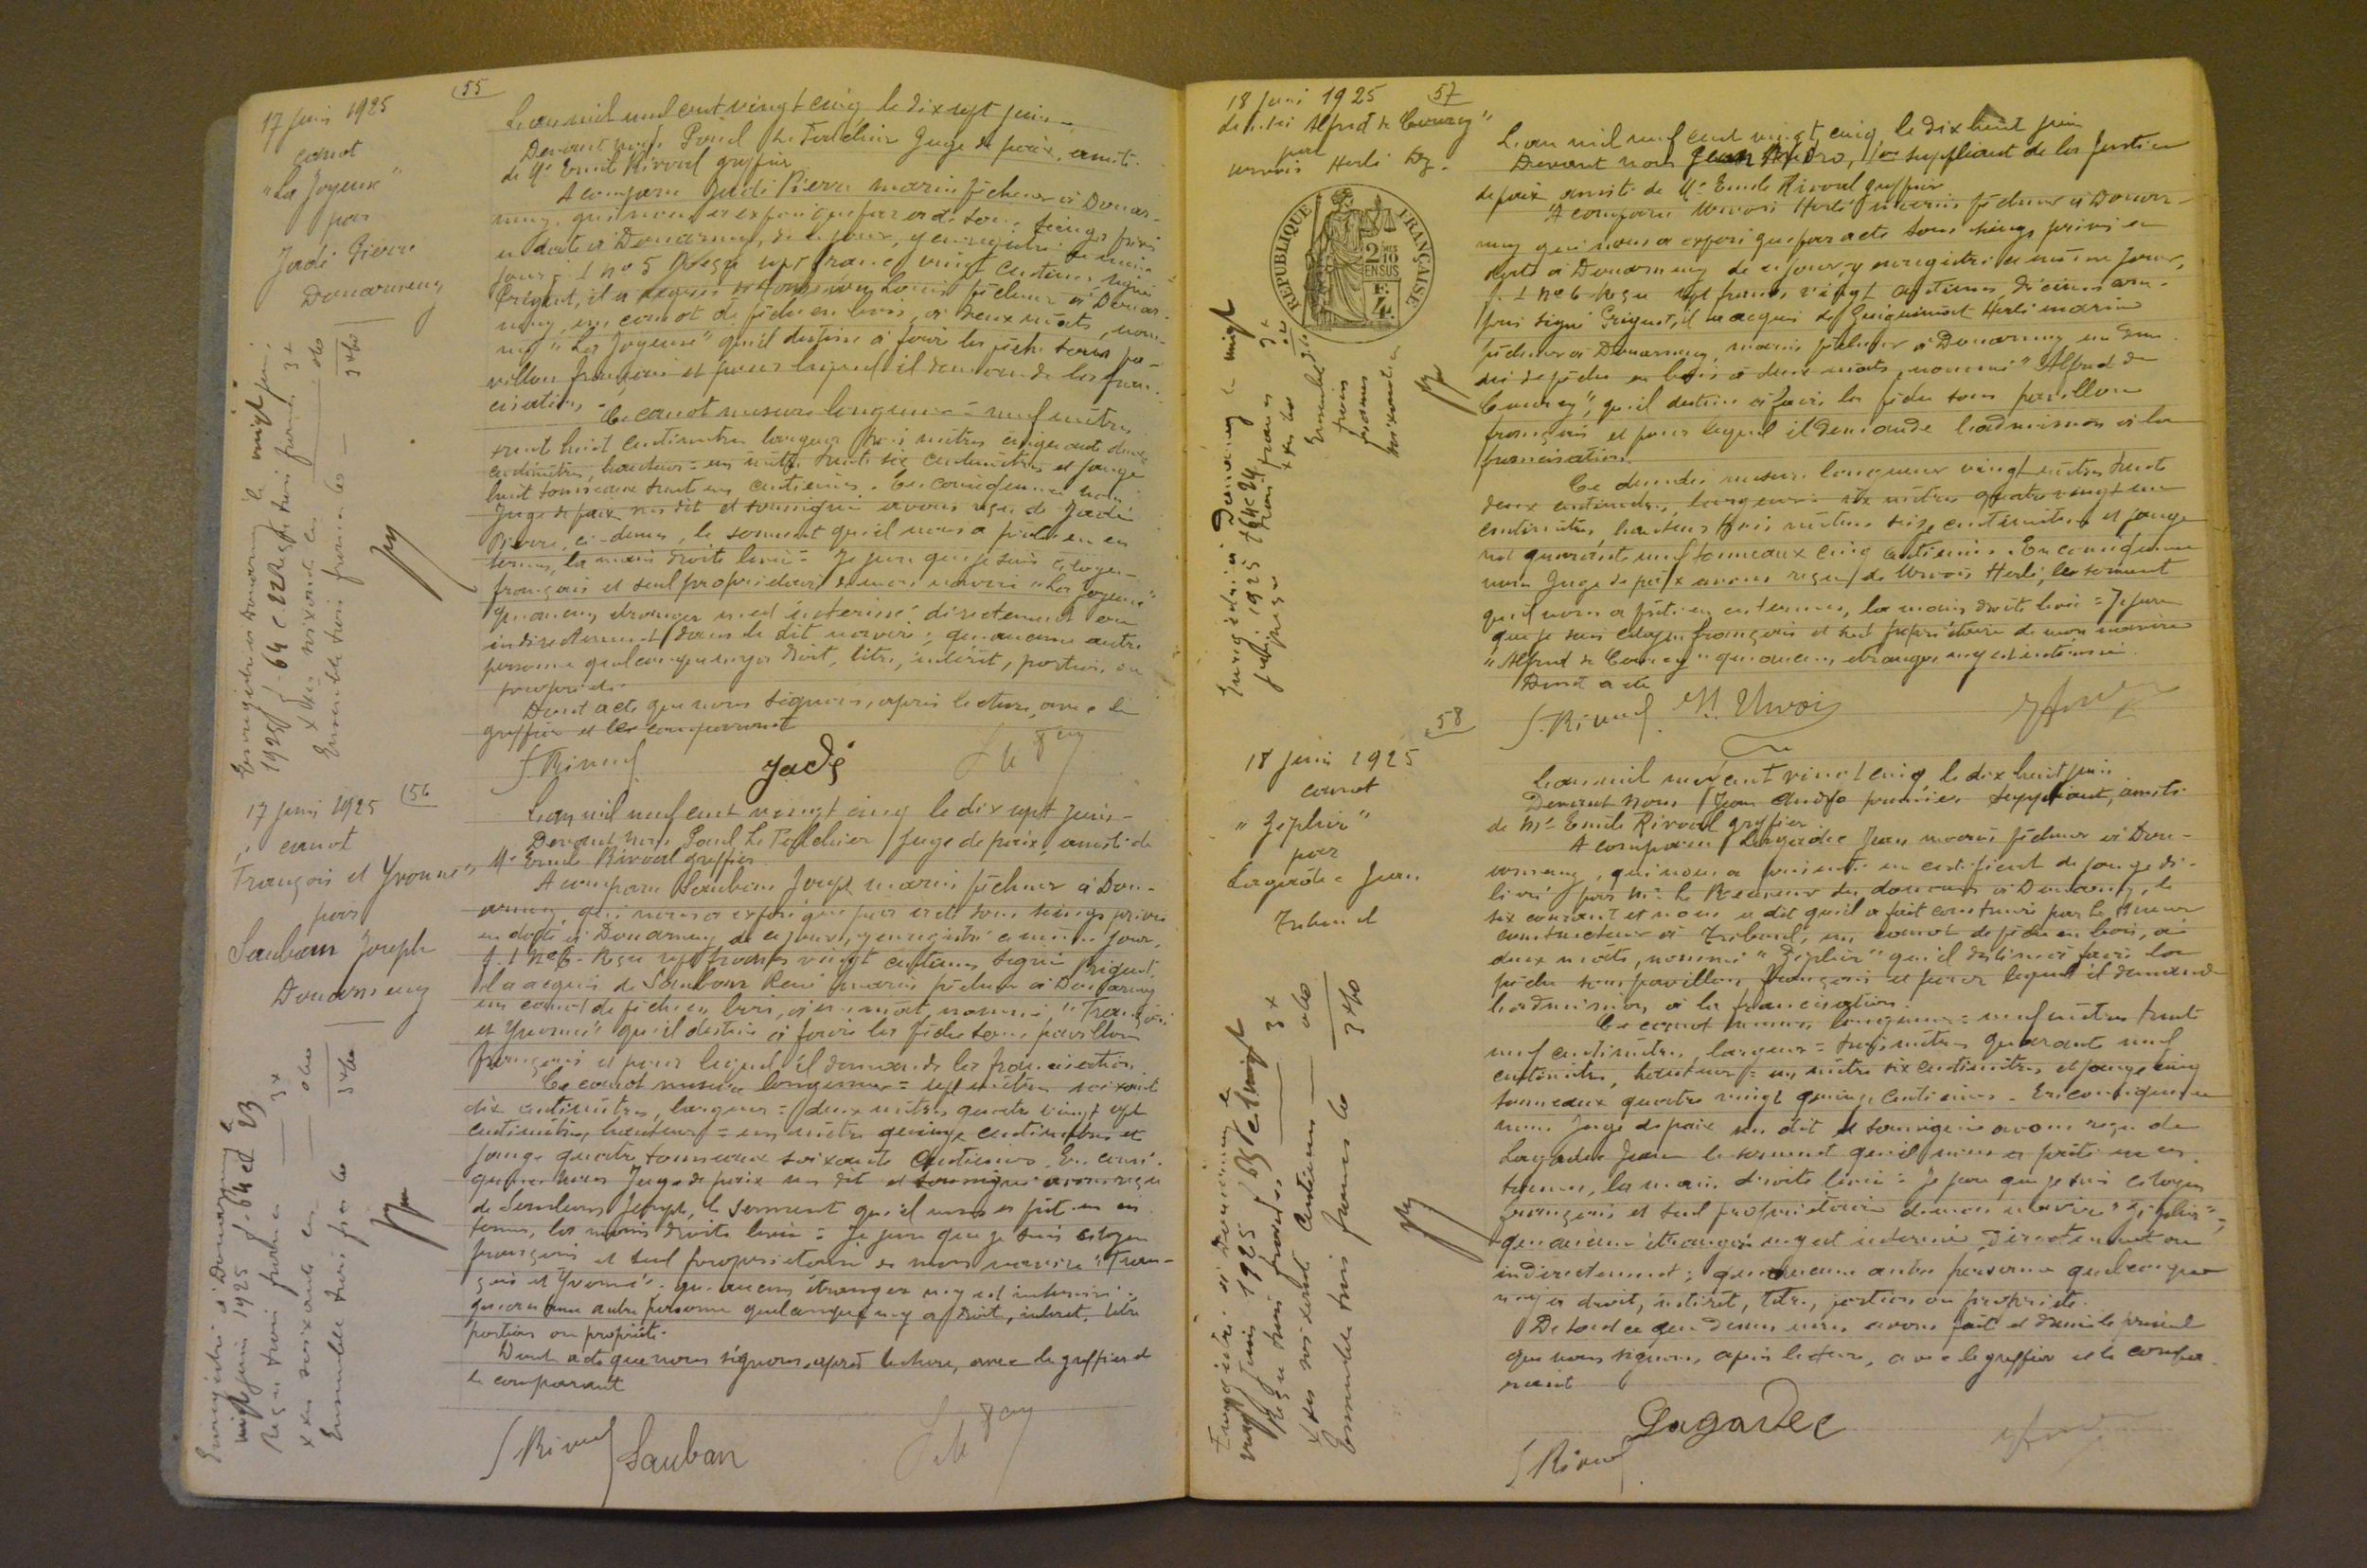 55
17 juin 1925
canot
"La Joyeuse"
par
Jadé Pierre
Douarnenez
L'an mil neuf cent vingt cinq, le dix sept juin
Devant nous Paul Le Juge de paix, assisté
de Me Emile Rivoal greffier
A comparu Jadé Pierre marin pêcheur à Douar-
nenez, qui nous a exposé que par acte sous seings privés
en date à Douarnenez, de ce jour, y enregistré le même
jour f. 1 no 5 Reçu sept francs vingt centimes, signé
Prigent, il a acquis de Louis pêcheur à Douar-
nenez, un canot de pêche en bois, à deux mâts, nom-
mé "La Joyeuse" qu'il destine à faire la pêche sous pa-
villon français et pour lequel il demande la fran-
cisation.
Ce canot mesure longueur = neuf mètres
trente huit centimètres largeur trois mètres cinquante deux
centimètres, hauteur = un mètre trente six centimètres et jauge
huit tonneaux trente un centièmes. En conséquence nous
Juge de paix sus dit et soussigné avons reçu de Jadé
Pierre, ci-dessus, le serment qu'il nous a prêté en ces
termes, la main droite levée = Je jure que je suis citoyen
français et seul propriétaire de mon navire "La Joyeuse"
qu'aucun étranger n'est intéressé directement ou
indirectement dans le dit navire ; qu'aucune autre
personne quelconque n'y a droit, titre, intérêt, portion ou
propriété.
Dont acte que nous signons, après lecture, avec le
greffier et le comparant
Rivoal Jadé
Enregistré à Douarnenez le vingt juin
1925 f. 64 c 22 Reçu trois francs 3x
x soixante c 0x60
Ensemble trois francs 60 3x60
56
17 juin 1925
canot
"François et Yvonne"
par
Sauban Joseph
Douarnenez
L'an mil neuf cent vingt cinq le dix sept juin
Devant nous Paul Le Juge de paix, assisté de
Me Emile Rivoal greffier
A comparu Sauban Joseph marin pêcheur à Dou-
arnenez, qui nous a exposé que par acte sous seings privés
en date à Douarnenez de ce jour, y enregistré le même jour,
f. 1 no 6. Reçu sept francs vingt centimes signé Prigent,
il a acquis de Sauban René marin pêcheur à Douarnenez
un canot de pêche en bois, à un mât, nommé, "François
et Yvonne" qu'il destine à faire la pêche sous pavillon
français et pour lequel il demande la francisation.
Ce canot mesure longueur = sept mètres soixante
dix centimètres, largeur = deux mètres quatre vingt sept
centimètres, hauteur = un mètre quinze centimètres et
jauge quatre tonneaux soixante centièmes. En consé-
quence nous Juge de paix sus dit et soussigné avons reçu
de Sauban Joseph, le serment qu'il nous a prêté en ces
termes, la main droite levée = Je jure que je suis citoyen
français et seul propriétaire de mon navire "Fran-
çois et Yvonne" ; qu'aucun étranger n'y est intéressé ;
qu'aucune autre personne quelconque n'y a droit, intérêt, titre
portion ou propriété.
Dont acte que nous signons, après lecture, avec le greffier et
le comparant
Rivoal Sauban
Enregistré à Douarnenez le
vingt juin 1925 f. 64 c 23
Reçu trois francs 3x
x soixante c 0x60
Ensemble trois francs 60 3x60
57
18 juin 1925
dundee Alfred de Courcy"
par
Urvois Hervé Dz.
RÉPUBLIQUE FRANÇAISE
2/10
EN SUS
F.
4.
L'an mil neuf cent vingt cinq, le dix huit juin
Devant nous Jean 1er suppléant de la Justice
de paix assisté de Me Emile Rivoal greffier
A comparu Urvois Hervé marin pêcheur à Douar-
nenez qui nous a exposé que par acte sous seings privés en
date à Douarnenez de ce jour, y enregistré le même jour,
f. 1 no 6 Reçu sept francs, vingt centimes, décimes com-
pris signé Prigent, il a acquis de Guiguiniat Hervé marin
pêcheur à Douarnenez, marin pêcheur à Douarnenez un dun-
dee de pêche en bois à deux mâts, nommé "Alfred de
Courcy", qu'il destine à faire la pêche sous pavillon
français et pour lequel il demande l'admission à la
francisation.
Ce dundee mesure longueur vingt mètres trente
deux centimètres, largeur = six mètres quatre vingt un
centimètres, hauteur trois mètres seize centimètres et jauge
net quarante neuf tonneaux cinq centièmes. En conséquence
nous Juge de paix avons reçu de Urvois Hervé, le serment
qu'il nous a prêté en ces termes, la main droite levée = Je jure
que je suis citoyen français et seul propriétaire de mon navire
"Alfred de Courcy" qu'aucun étranger n'y est intéressé.
Dont acte
Rivoal H. Urvois
Enregistré à Douarnenez le vingt
juin 1925 f 64 c 24
Reçu trois francs 3x
Ensemble
trois
francs
soixante
58
18 juin 1925
canot
"Zéphir"
par
Lagadec Jean
Tréboul
L'an mil neuf cent vingt cinq le dix huit juin
Devant nous Jean premier suppléant, assisté
de Me Emile Rivoal greffier
A comparu Lagadec Jean marin pêcheur à Dou-
arnenez, qui nous a présenté un certificat de jauge dé-
livré par Mr le Receveur des douanes à Douarnenez, le
six courant et nous a dit qu'il a fait construire par
constructeur à Tréboul, un canot de pêche en bois, à
deux mâts, nommé "Zéphir" qu'il destine à faire la
pêche sous pavillon français et pour lequel il demande
l'admission à la francisation.
Ce canot mesure longueur = neuf mètres trente
neuf centimètres, largeur = trois mètres quarante neuf
centimètres, hauteur = un mètre six centimètres et jauge cinq
tonneaux quatre vingt quinze centièmes. En conséquence
nous Juge de paix sus dit et soussigné avons reçu de
Lagadec Jean le serment qu'il nous a prêté en ces
termes, la main droite levée = Je jure que je suis citoyen
français et seul propriétaire de mon navire "Zéphir" ;
qu'aucun étranger n'y est intéressé, directement ou
indirectement ; qu'aucune autre personne quelconque
n'y a droit, intérêt, titre, portion ou propriété.
De tout ce que dessus nous avons fait et dressé le présent
que nous signons, après lecture, avec le greffier et le compa-
rant
Lagadec
Rivoal
Enregistré à Douarnenez le
vingt juin 1925
Reçu trois francs 3x
x soixante centimes 0x60
Ensemble trois francs 60 3x60